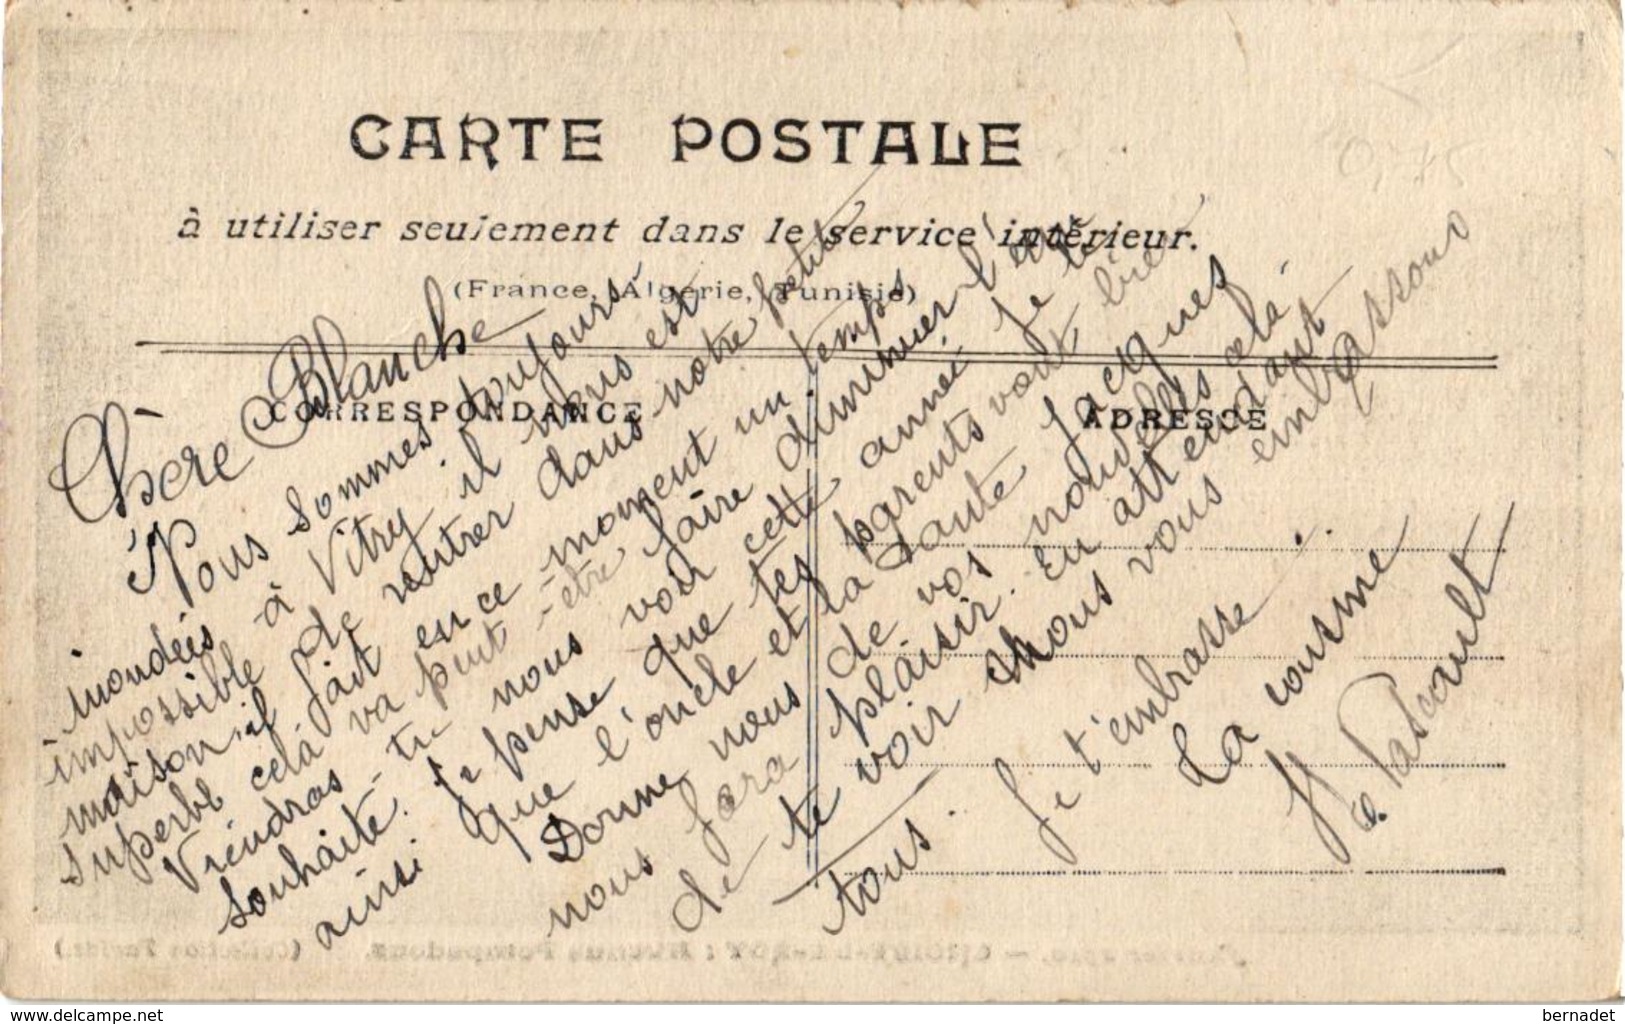 CARTE POSTALE
à utiliser seulement dans le service intérieur.
(France, Algérie, Tunisie)
CORRESPONDANCE
ADRESSE
Chère Blanche
Nous sommes toujours
inondées à Vitry il nous est
impossible de rentrer dans notre petite
maison il fait en ce moment un temps
superbe celà va peut-être faire diminuer l'eau
Viendras-tu nous voir cette année je le
souhaite. Je pense que tes parents vont bien
ainsi que l'oncle et la santé Jacques
Donne nous de vos nouvelles celà
nous fera plaisir. En attendant
de te voir nous vous embrassons
tous. Je t'embrasse.
La cousine
H. Pascault
Janvier 1910. — CHOISY-LE-ROY : Avenue Pompadour. (Collection
bernadet